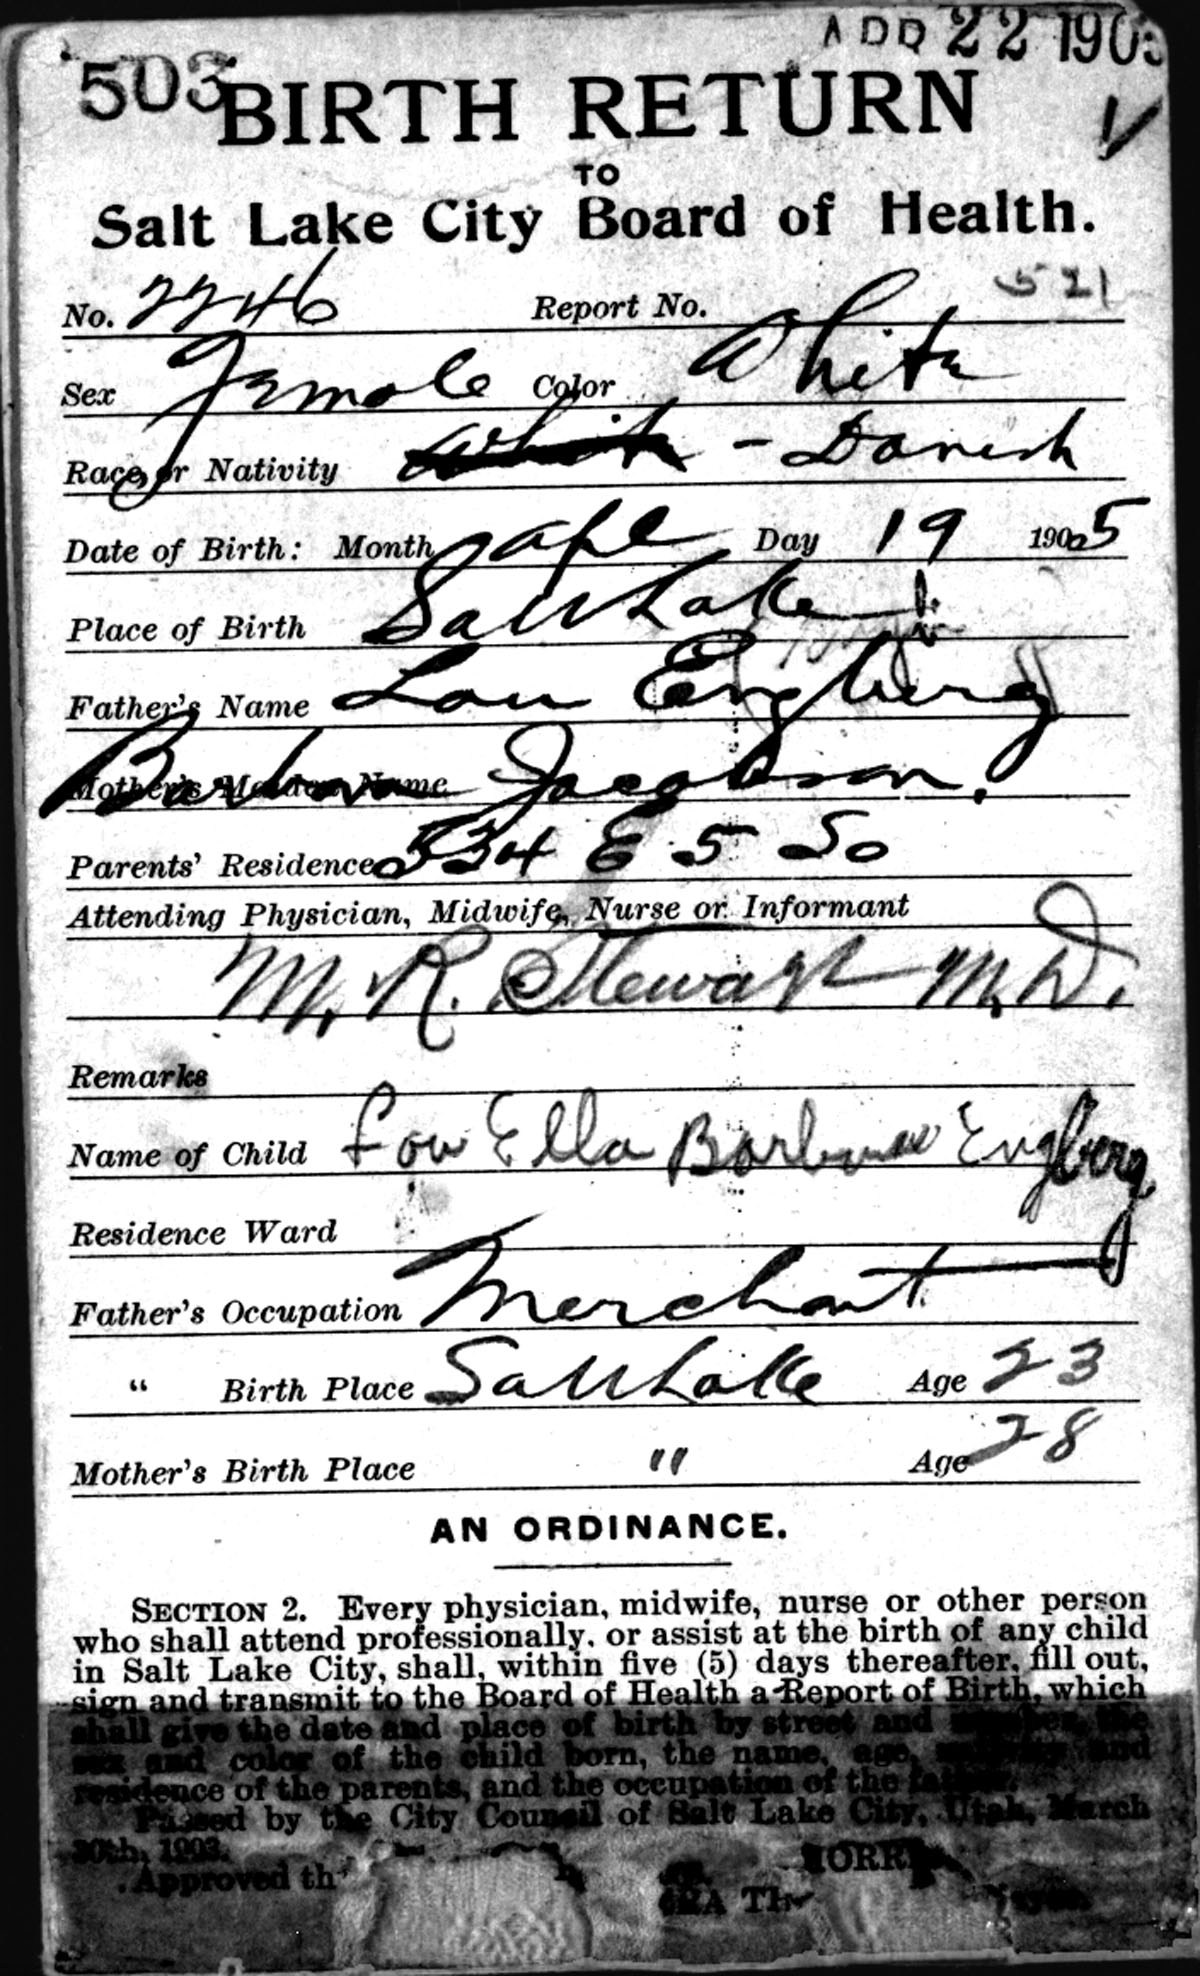 503 APR 22 1905
BIRTH RETURN
TO
Salt Lake City Board of Health.
521
No. 2246 Report No.
Sex Female Color White
Race or Nativity White - Danish
Date of Birth: Month Apl Day 19 1905
Place of Birth Salt Lake
Father's Name Lou Engberg
Mother's Maiden Name Barbara Jacobson.
Parents' Residence 534 E 5 So
Attending Physician, Midwife, Nurse or Informant
M. R. Stewart M.D.
Remarks
Name of Child Lou Ella Barbara Engberg
Residence Ward
Father's Occupation Merchant
" Birth Place Salt Lake Age 23
Mother's Birth Place " Age 28
AN ORDINANCE.
SECTION 2. Every physician, midwife, nurse or other person
who shall attend professionally, or assist at the birth of any child
in Salt Lake City, shall, within five (5) days thereafter, fill out,
sign and transmit to the Board of Health a Report of Birth, which
shall give the date and place of birth by street and number, the
sex and color of the child born, the name, age, and
residence of the parents, and the occupation of the father.
Passed by the City Council of Salt Lake City, Utah, March
30th, 1903.
Approved th